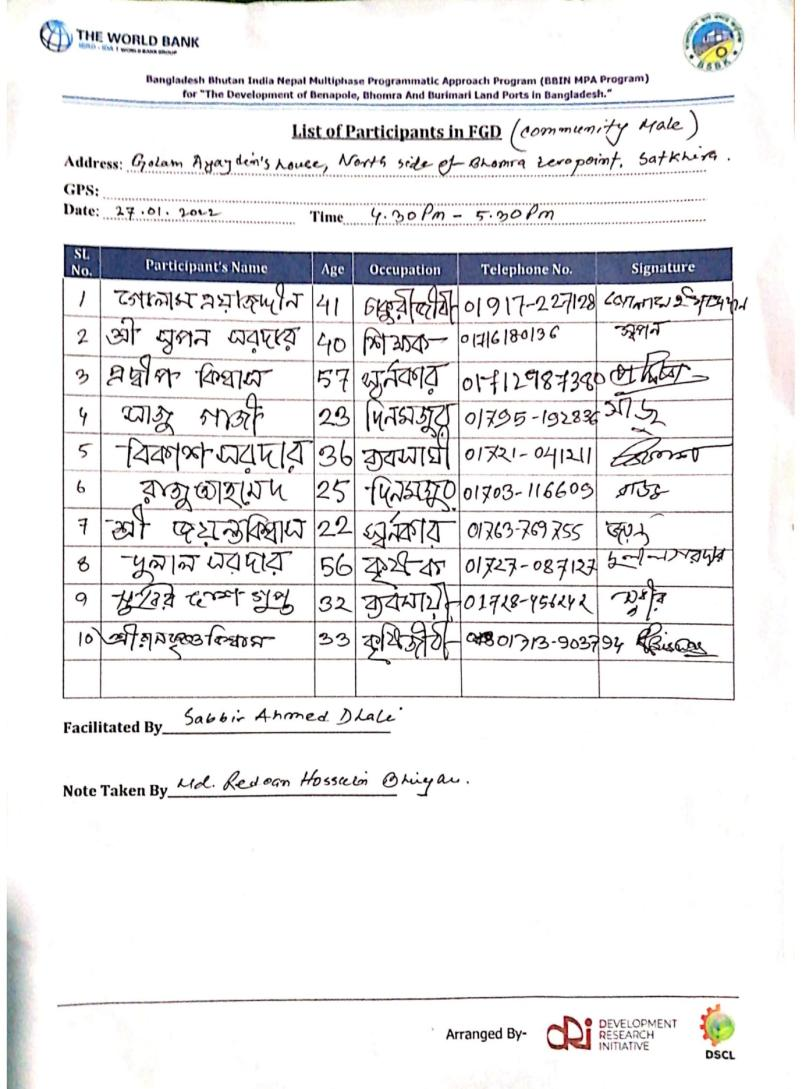 THE WORLD BANK
IBRD • IDA | WORLD BANK GROUP
BSBK
Bangladesh Bhutan India Nepal Multiphase Programmatic Approach Program (BBIN MPA Program)
for "The Development of Benapole, Bhomra And Burimari Land Ports in Bangladesh."
List of Participants in FGD (Community Male)
Address: Golam Ayazdein's house, North side of Bhomra zero point, Satkhira.
GPS:
Date: 27.01.2022 Time 4.30 Pm - 5.30 Pm
SL No. Participant's Name Age Occupation Telephone No. Signature
1 গোলাম এয়াজদ্দীন 41 চাকুরীজীবী 01917-227128
2 শ্রী স্বপন সরদার 40 শিক্ষক 01716180136 স্বপন
3 প্রদ্বীপ বিশ্বাস 57 স্বর্নকার 01712987380
4 সাজু গাজী 23 দিনমজুর 01795-192836 সাজু
5 বিকাশ সরদার 36 ব্যবসায়ী 01721-041211
6 রাজু আহমেদ 25 দিনমজুর 01703-116609 রাজু
7 শ্রী জয়ন্ত বিশ্বাস 22 স্বর্নকার 01763-769755 জয়ন্ত
8 দুলাল সরদার 56 কৃষক 01727-087127 দুলাল সরদার
9 সুধীর দেশ গুপ্ত 32 ব্যবসায়ী 01728-456242 সুধীর
10) শ্রী বিশ্বাস 33 কৃষিজীবী 01313-903794 Biswas
Facilitated By Sabbir Ahmed Dhali
Note Taken By Md. Redoan Hossain Bhuyan.
Arranged By- dRi DEVELOPMENT
RESEARCH
INITIATIVE
DSCL